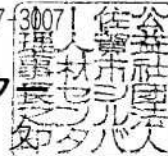 -3007
公益社団法人
佐賀市シルバ
ー人材センタ
理事長之印
7